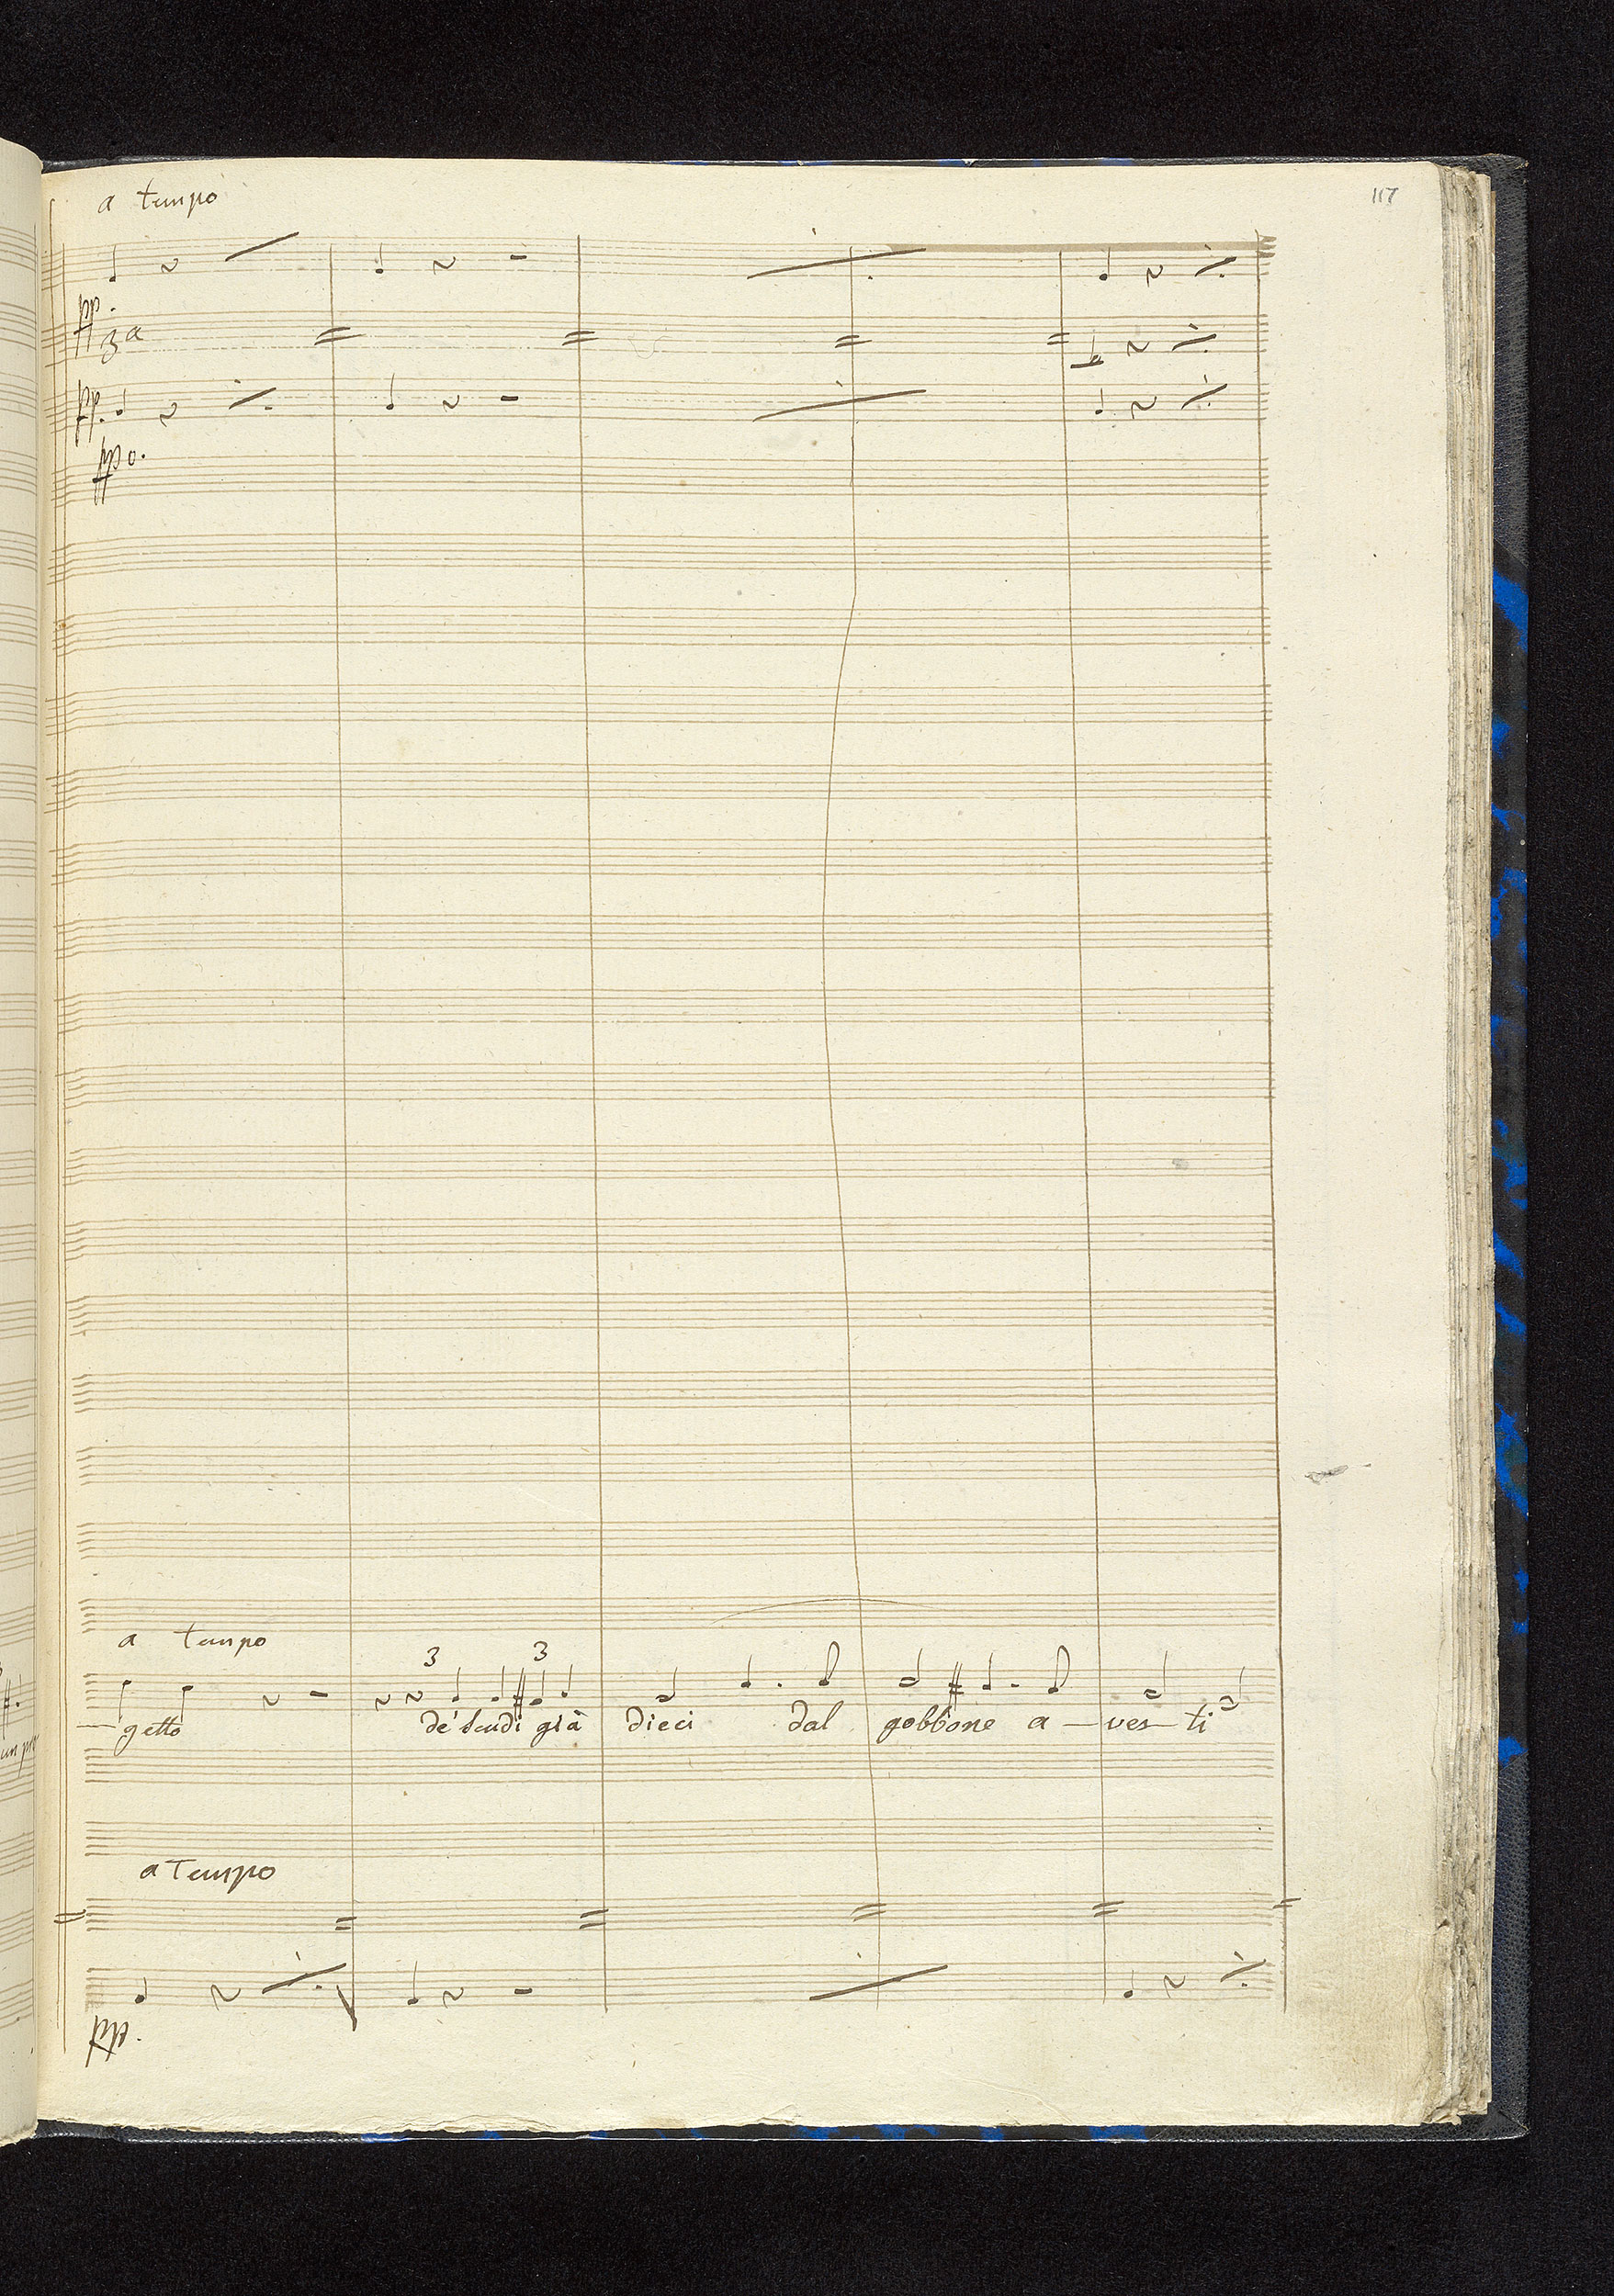 a tempo
117
pp.
3a
pp.
ppo.
a tempo
3 3
getto de' scudi già dieci dal gobbone a—ves—ti
un pro
a Tempo
pp.